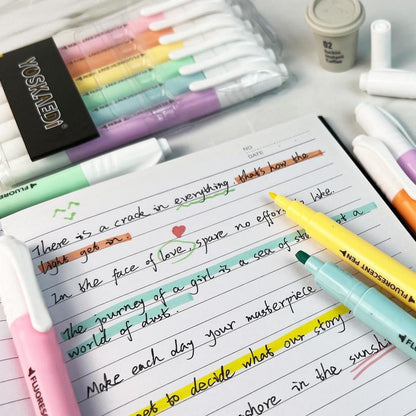 YOSKAEDI
02
NO
DATE
There is a crack in everything, that's how the
light get in.
In the face of love, spare no effort, like
The journey of a girl is a sea of a
world of dust.
Make each day your masterpiece
get to decide what our story
shore in the sunshi
FLUORESCENT PEN
FLUORESCENT PEN
FLUORESCENT
FLUORESCEN
FLUORES